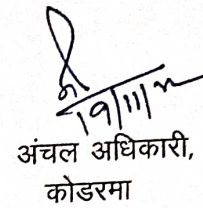 19/11/
अंचल अधिकारी,
कोडरमा